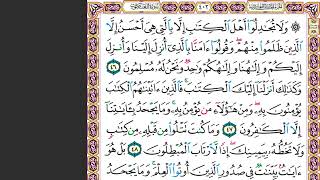 ۞ وَلَا تُجَٰدِلُوٓا۟ أَهْلَ ٱلْكِتَٰبِ إِلَّا بِٱلَّتِى هِىَ أَحْسَنُ إِلَّا
ٱلَّذِينَ ظَلَمُوا۟ مِنْهُمْ ۖ وَقُولُوٓا۟ ءَامَنَّا بِٱلَّذِىٓ أُنزِلَ إِلَيْنَا وَأُنزِلَ
إِلَيْكُمْ وَإِلَٰهُنَا وَإِلَٰهُكُمْ وَٰحِدٌ وَنَحْنُ لَهُۥ مُسْلِمُونَ ٤٦
وَكَذَٰلِكَ أَنزَلْنَآ إِلَيْكَ ٱلْكِتَٰبَ ۚ فَٱلَّذِينَ ءَاتَيْنَٰهُمُ ٱلْكِتَٰبَ
يُؤْمِنُونَ بِهِۦ ۖ وَمِنْ هَٰٓؤُلَآءِ مَن يُؤْمِنُ بِهِۦ ۚ وَمَا يَجْحَدُ بِـَٔايَٰتِنَآ
إِلَّا ٱلْكَٰفِرُونَ ٤٧ وَمَا كُنتَ تَتْلُوا۟ مِن قَبْلِهِۦ مِن كِتَٰبٍ
وَلَا تَخُطُّهُۥ بِيَمِينِكَ ۖ إِذًا لَّٱرْتَابَ ٱلْمُبْطِلُونَ ٤٨ بَلْ هُوَ
ءَايَٰتٌۢ بَيِّنَٰتٌ فِى صُدُورِ ٱلَّذِينَ أُوتُوا۟ ٱلْعِلْمَ ۚ وَمَا يَجْحَدُ